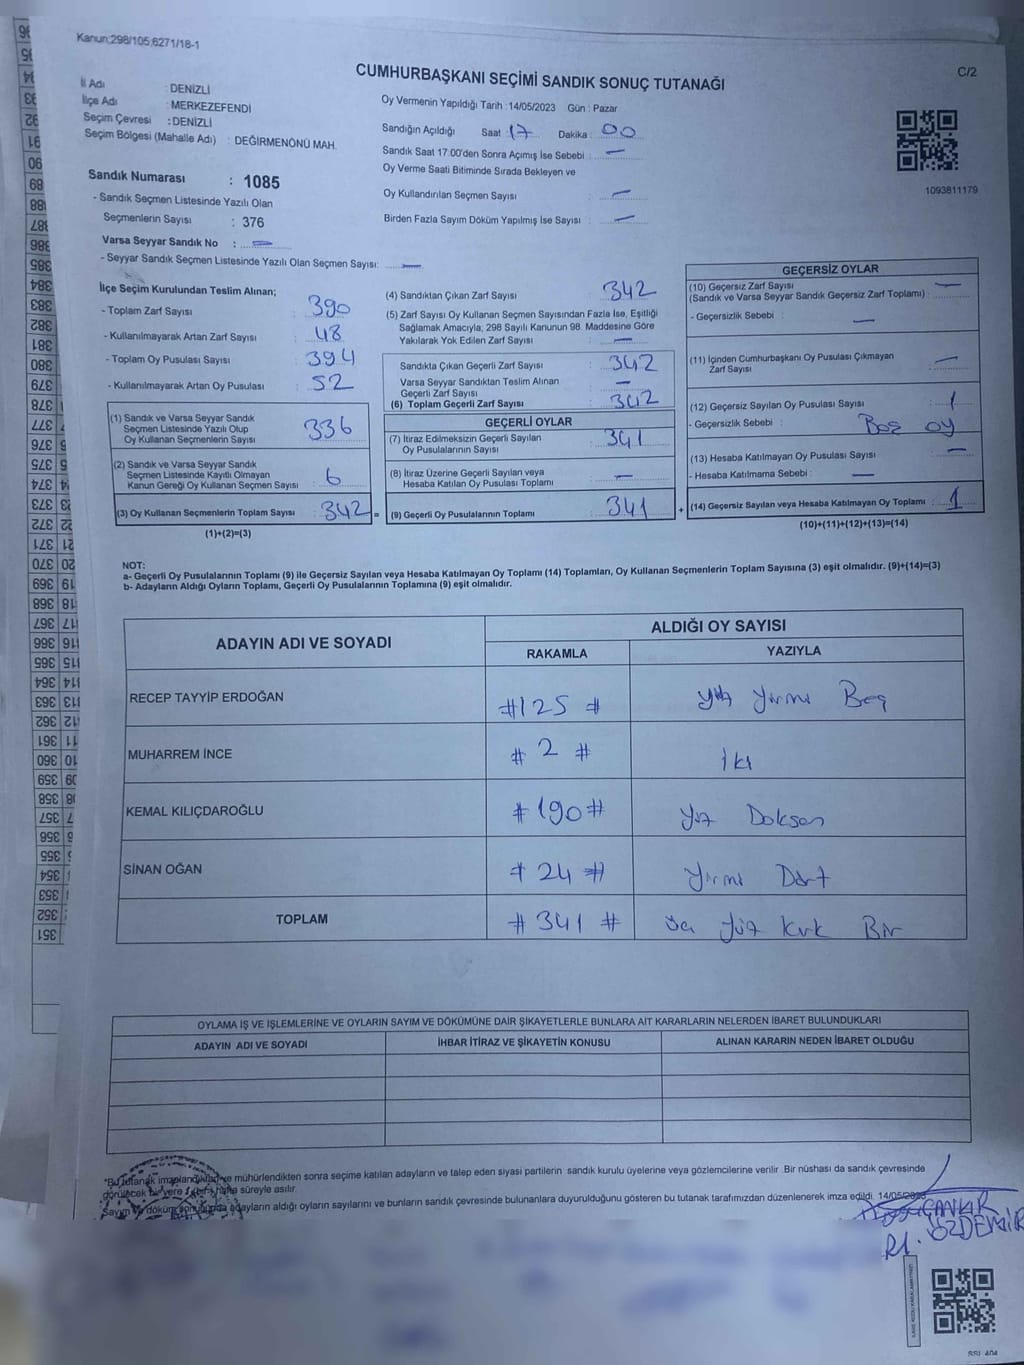 Kanun:298/105,6271/18-1
C/2
CUMHURBAŞKANI SEÇİMİ SANDIK SONUÇ TUTANAĞI
İl Adı : DENİZLİ
İlçe Adı : MERKEZEFENDİ
Seçim Çevresi : DENİZLİ
Seçim Bölgesi (Mahalle Adı) : DEĞİRMENÖNÜ MAH.
Sandık Numarası : 1085
- Sandık Seçmen Listesinde Yazılı Olan
Seçmenlerin Sayısı : 376
Varsa Seyyar Sandık No : —
- Seyyar Sandık Seçmen Listesinde Yazılı Olan Seçmen Sayısı: —
Oy Vermenin Yapıldığı Tarih : 14/05/2023 Gün : Pazar
Sandığın Açıldığı Saat : 17 Dakika : 00
Sandık Saat 17:00'den Sonra Açımış İse Sebebi : —
Oy Verme Saati Bitiminde Sırada Bekleyen ve
Oy Kullandırılan Seçmen Sayısı : —
Birden Fazla Sayım Döküm Yapılmış İse Sayısı : —
1093811179
İlçe Seçim Kurulundan Teslim Alınan;
- Toplam Zarf Sayısı : 390
- Kullanılmayarak Artan Zarf Sayısı : 48
- Toplam Oy Pusulası Sayısı : 394
- Kullanılmayarak Artan Oy Pusulası : 52
(1) Sandık ve Varsa Seyyar Sandık
Seçmen Listesinde Yazılı Olup
Oy Kullanan Seçmenlerin Sayısı : 336
(2) Sandık ve Varsa Seyyar Sandık
Seçmen Listesinde Kayıtlı Olmayan
Kanun Gereği Oy Kullanan Seçmen Sayısı : 6
(3) Oy Kullanan Seçmenlerin Toplam Sayısı : 342 =
(1)+(2)=(3)
(4) Sandıktan Çıkan Zarf Sayısı : 342
(5) Zarf Sayısı Oy Kullanan Seçmen Sayısından Fazla İse, Eşitliği
Sağlamak Amacıyla; 298 Sayılı Kanunun 98. Maddesine Göre
Yakılarak Yok Edilen Zarf Sayısı : —
Sandıkta Çıkan Geçerli Zarf Sayısı : 342
Varsa Seyyar Sandıktan Teslim Alınan
Geçerli Zarf Sayısı : —
(6) Toplam Geçerli Zarf Sayısı : 342
GEÇERLİ OYLAR
(7) İtiraz Edilmeksizin Geçerli Sayılan
Oy Pusulalarının Sayısı : 341
(8) İtiraz Üzerine Geçerli Sayılan veya
Hesaba Katılan Oy Pusulası Toplamı : —
(9) Geçerli Oy Pusulalarının Toplamı : 341 +
GEÇERSİZ OYLAR
(10) Geçersiz Zarf Sayısı
(Sandık ve Varsa Seyyar Sandık Geçersiz Zarf Toplamı) : —
- Geçersizlik Sebebi : —
(11) İçinden Cumhurbaşkanı Oy Pusulası Çıkmayan
Zarf Sayısı : —
(12) Geçersiz Sayılan Oy Pusulası Sayısı : 1
- Geçersizlik Sebebi : Boş oy
(13) Hesaba Katılmayan Oy Pusulası Sayısı : —
- Hesaba Katılmama Sebebi : —
(14) Geçersiz Sayılan veya Hesaba Katılmayan Oy Toplamı : 1
(10)+(11)+(12)+(13)=(14)
NOT:
a- Geçerli Oy Pusulalarının Toplamı (9) ile Geçersiz Sayılan veya Hesaba Katılmayan Oy Toplamı (14) Toplamları, Oy Kullanan Seçmenlerin Toplam Sayısına (3) eşit olmalıdır. (9)+(14)=(3)
b- Adayların Aldığı Oyların Toplamı, Geçerli Oy Pusulalarının Toplamına (9) eşit olmalıdır.
ADAYIN ADI VE SOYADI ALDIĞI OY SAYISI
RAKAMLA YAZIYLA
RECEP TAYYİP ERDOĞAN #125 # yüz yirmi Beş
MUHARREM İNCE # 2 # iki
KEMAL KILIÇDAROĞLU # 190 # Yüz Doksan
SİNAN OĞAN # 24 # yirmi Dört
TOPLAM # 341 # Üç yüz kırk Bir
OYLAMA İŞ VE İŞLEMLERİNE VE OYLARIN SAYIM VE DÖKÜMÜNE DAİR ŞİKAYETLERLE BUNLARA AİT KARARLARIN NELERDEN İBARET BULUNDUKLARI
ADAYIN ADI VE SOYADI İHBAR İTİRAZ VE ŞİKAYETİN KONUSU ALINAN KARARIN NEDEN İBARET OLDUĞU
"Bu tutanak imzalandıktan ve mühürlendikten sonra seçime katılan adayların ve talep eden siyasi partilerin sandık kurulu üyelerine veya gözlemcilerine verilir .Bir nüshası da sandık çevresinde
görülecek bir yere 1 (bir) hafta süreyle asılır.
Sayım ve döküm sonucunda adayların aldığı oyların sayılarını ve bunların sandık çevresinde bulunanlara duyurulduğunu gösteren bu tutanak tarafımızdan düzenlenerek imza edildi. 14/05/2023
ÖZDEMİR